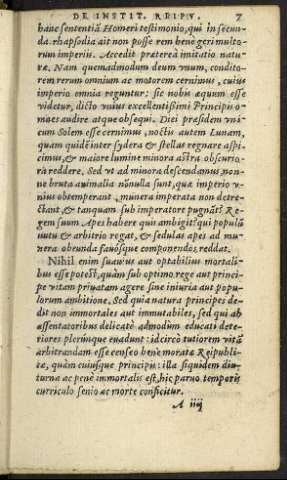 DE INSTIT. REIPV. 7
hanc sententiã Homeri testimonio, qui in secun-
da rhapsodia ait non posse rem benè geri multo-
rum imperii. Accedit præterea imitatio natu-
ræ. Nam quemadmodum deum vnum, condito-
rem rerum omnium ac motorem cernimus, cuius
imperio omnia reguntur: sic nobis æquum esse
videtur, dicto vnius excellentißimi Principis o-
mnes audire atque obsequi. Diei præsidem vni-
cum Solem esse cernimus, noctis autem Lunam,
quam quidẽ inter sydera & stellas regnare aspi-
cimus, & maiore lumine minora astra obscurio-
ra reddere. Sed vt ad minora descendamus, non-
ne bruta animalia nõnulla sunt, quæ imperio v-
nius obtemperant, munera imperata non detre-
ctant, & tanquam sub imperatore pugnãt? Re-
gem suum Apes habere quis ambigit? qui populũ
iustu & arbitrio regat, & sedulas apes ad mu-
nera obeunda fauósque componendos reddat.
Nihil enim suauius aut optabilius mortali-
bus esse potest, quàm sub optimo rege aut princi-
pe vitam priuatam agere sine iniuria aut popu-
lorum ambitione. Sed quia natura principes de-
dit non immortales aut immutabiles, sed qui ab
assentatoribus delicatè admodum educati dete-
riores plerunque euadunt: idcircò tutiorem vitã
arbitrandam esse censeo benè moratæ Reipubli-
cæ, quàm cuiusque principis: illa siquidem diu-
turna ac penè immortalis est, hic paruo temporis
curriculo senio ac morte conficitur.
A iiij